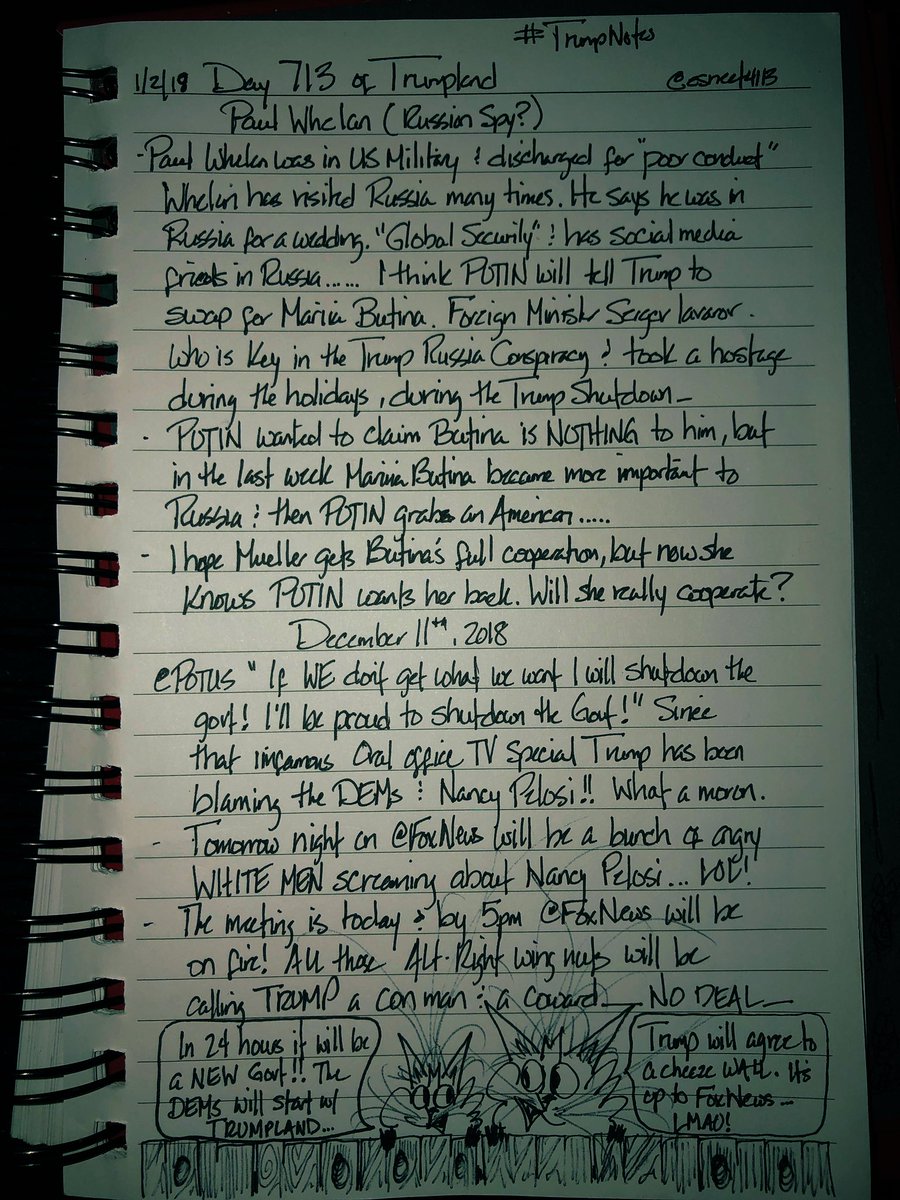 #TrumpNotes
1/2/18 Day 713 of Trumpland
Paul Whelan (Russian Spy?)
- Paul Whelan was in US Military & discharged for "poor conduct"
Whelan has visited Russia many times. He says he was in
Russia for a wedding. "Global Security" & has social media
friends in Russia...... I think PUTIN will tell Trump to
swap for Mariia Butina. Foreign Minister Sergev lavarov.
who is Key in the Trump Russia Conspiracy & took a hostage
during the holidays, during the Trump Shutdown_
- PUTIN wanted to claim Butina is NOTHING to him, but
in the last week Mariia Butina became more important to
Russia & then PUTIN grabs an American.....
- I hope Mueller gets Butina's full cooperation, but now she
Knows PUTIN wants her back. Will she really cooperate?
December 11th, 2018
@POTUS "If WE don't get what we want I will shutdown the
govt! I'll be proud to shutdown the Govt!" Since
that infamous Oval office TV Special Trump has been
blaming the DEMs & Nancy Pelosi!! What a moron.
- Tomorrow night on @FoxNews will be a bunch of angry
WHITE MEN screaming about Nancy Pelosi... LOL!
- The meeting is today & by 5pm @FoxNews will be
on fire! All those Alt-Right wing nuts will be
calling TRUMP a con man & a coward_ NO DEAL_
In 24 hours it will be
a NEW Govt!! The
DEMs will start w/
TRUMPLAND...
Trump will agree to
a cheeze WALL. It's
up to FoxNews...
LMAO!